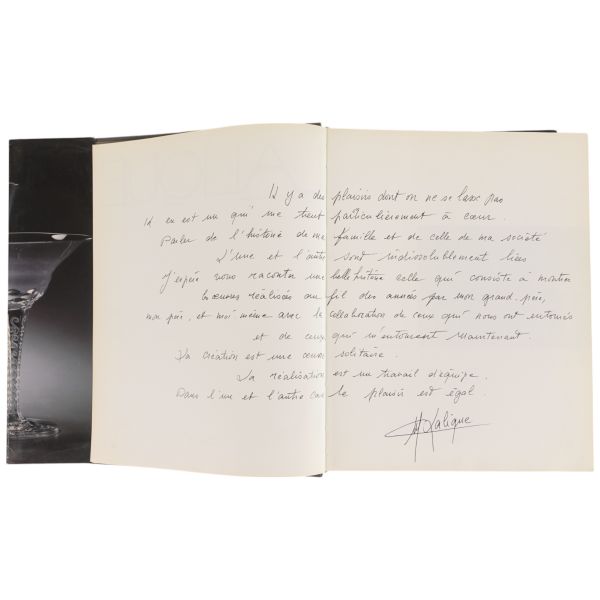 Il y a des plaisirs dont on ne se lasse pas
Il en est un qui me tient particulièrement à cœur.
Parler de l'histoire de ma famille et de celle de ma société
L'une et l'autre sont indissolublement liées
J'espère vous raconter une belle histoire celle qui consiste à montrer
les œuvres réalisées au fil des années par mon grand-père,
mon père, et moi même avec la collaboration de ceux qui nous ont entourés
et de ceux qui m'entourent maintenant.
La création est une œuvre solitaire.
La réalisation est un travail d'équipe.
Dans l'un et l'autre cas le plaisir est égal.
Lalique